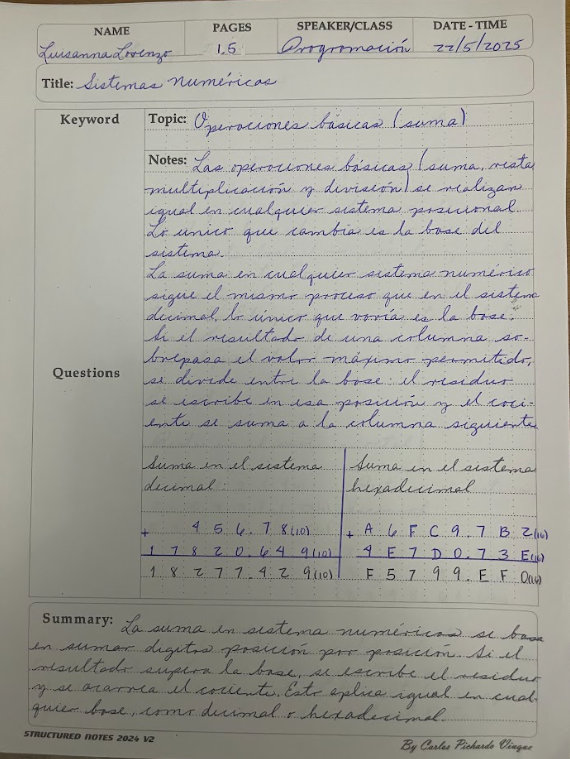 NAME PAGES SPEAKER/CLASS DATE - TIME
Luisanna Lorenzo 1.5 Programación 22/5/2025
Title: Sistemas numéricos
Keyword
Topic: Operaciones básicas (suma)
Notes: Las operaciones básicas (suma, resta
multiplicación y división) se realizan
igual en cualquier sistema posicional.
Lo único que cambia es la base del
sistema.
La suma en cualquier sistema numérico
sigue el mismo proceso que en el sistema
decimal, lo único que varía es la base.
Si el resultado de una columna so-
brepasa el valor máximo permitido,
Questions
se divide entre la base: el residuo
se escribe en esa posición y el coci-
ente se suma a la columna siguiente
Suma en el sistema
decimal
+ 4 5 6 . 7 8(10)
1 7 8 2 0 . 6 4 9(10)
1 8 2 7 7 . 4 2 9(10)
Suma en el sistema
hexadecimal
+ A 6 F C 9 . 7 B 2(16)
4 E 7 D 0 . 7 3 E(16)
F 5 7 9 9 . E F 0(16)
Summary: La suma en sistema numéricos se basa
en sumar digitos posición por posición. Si el
resultado supera la base, se escribe el residuo
y se acarrea el cociente. Esto aplica igual en cual-
quier base, como decimal o hexadecimal.
STRUCTURED NOTES 2024 V2
By Carlos Pichardo Viuque